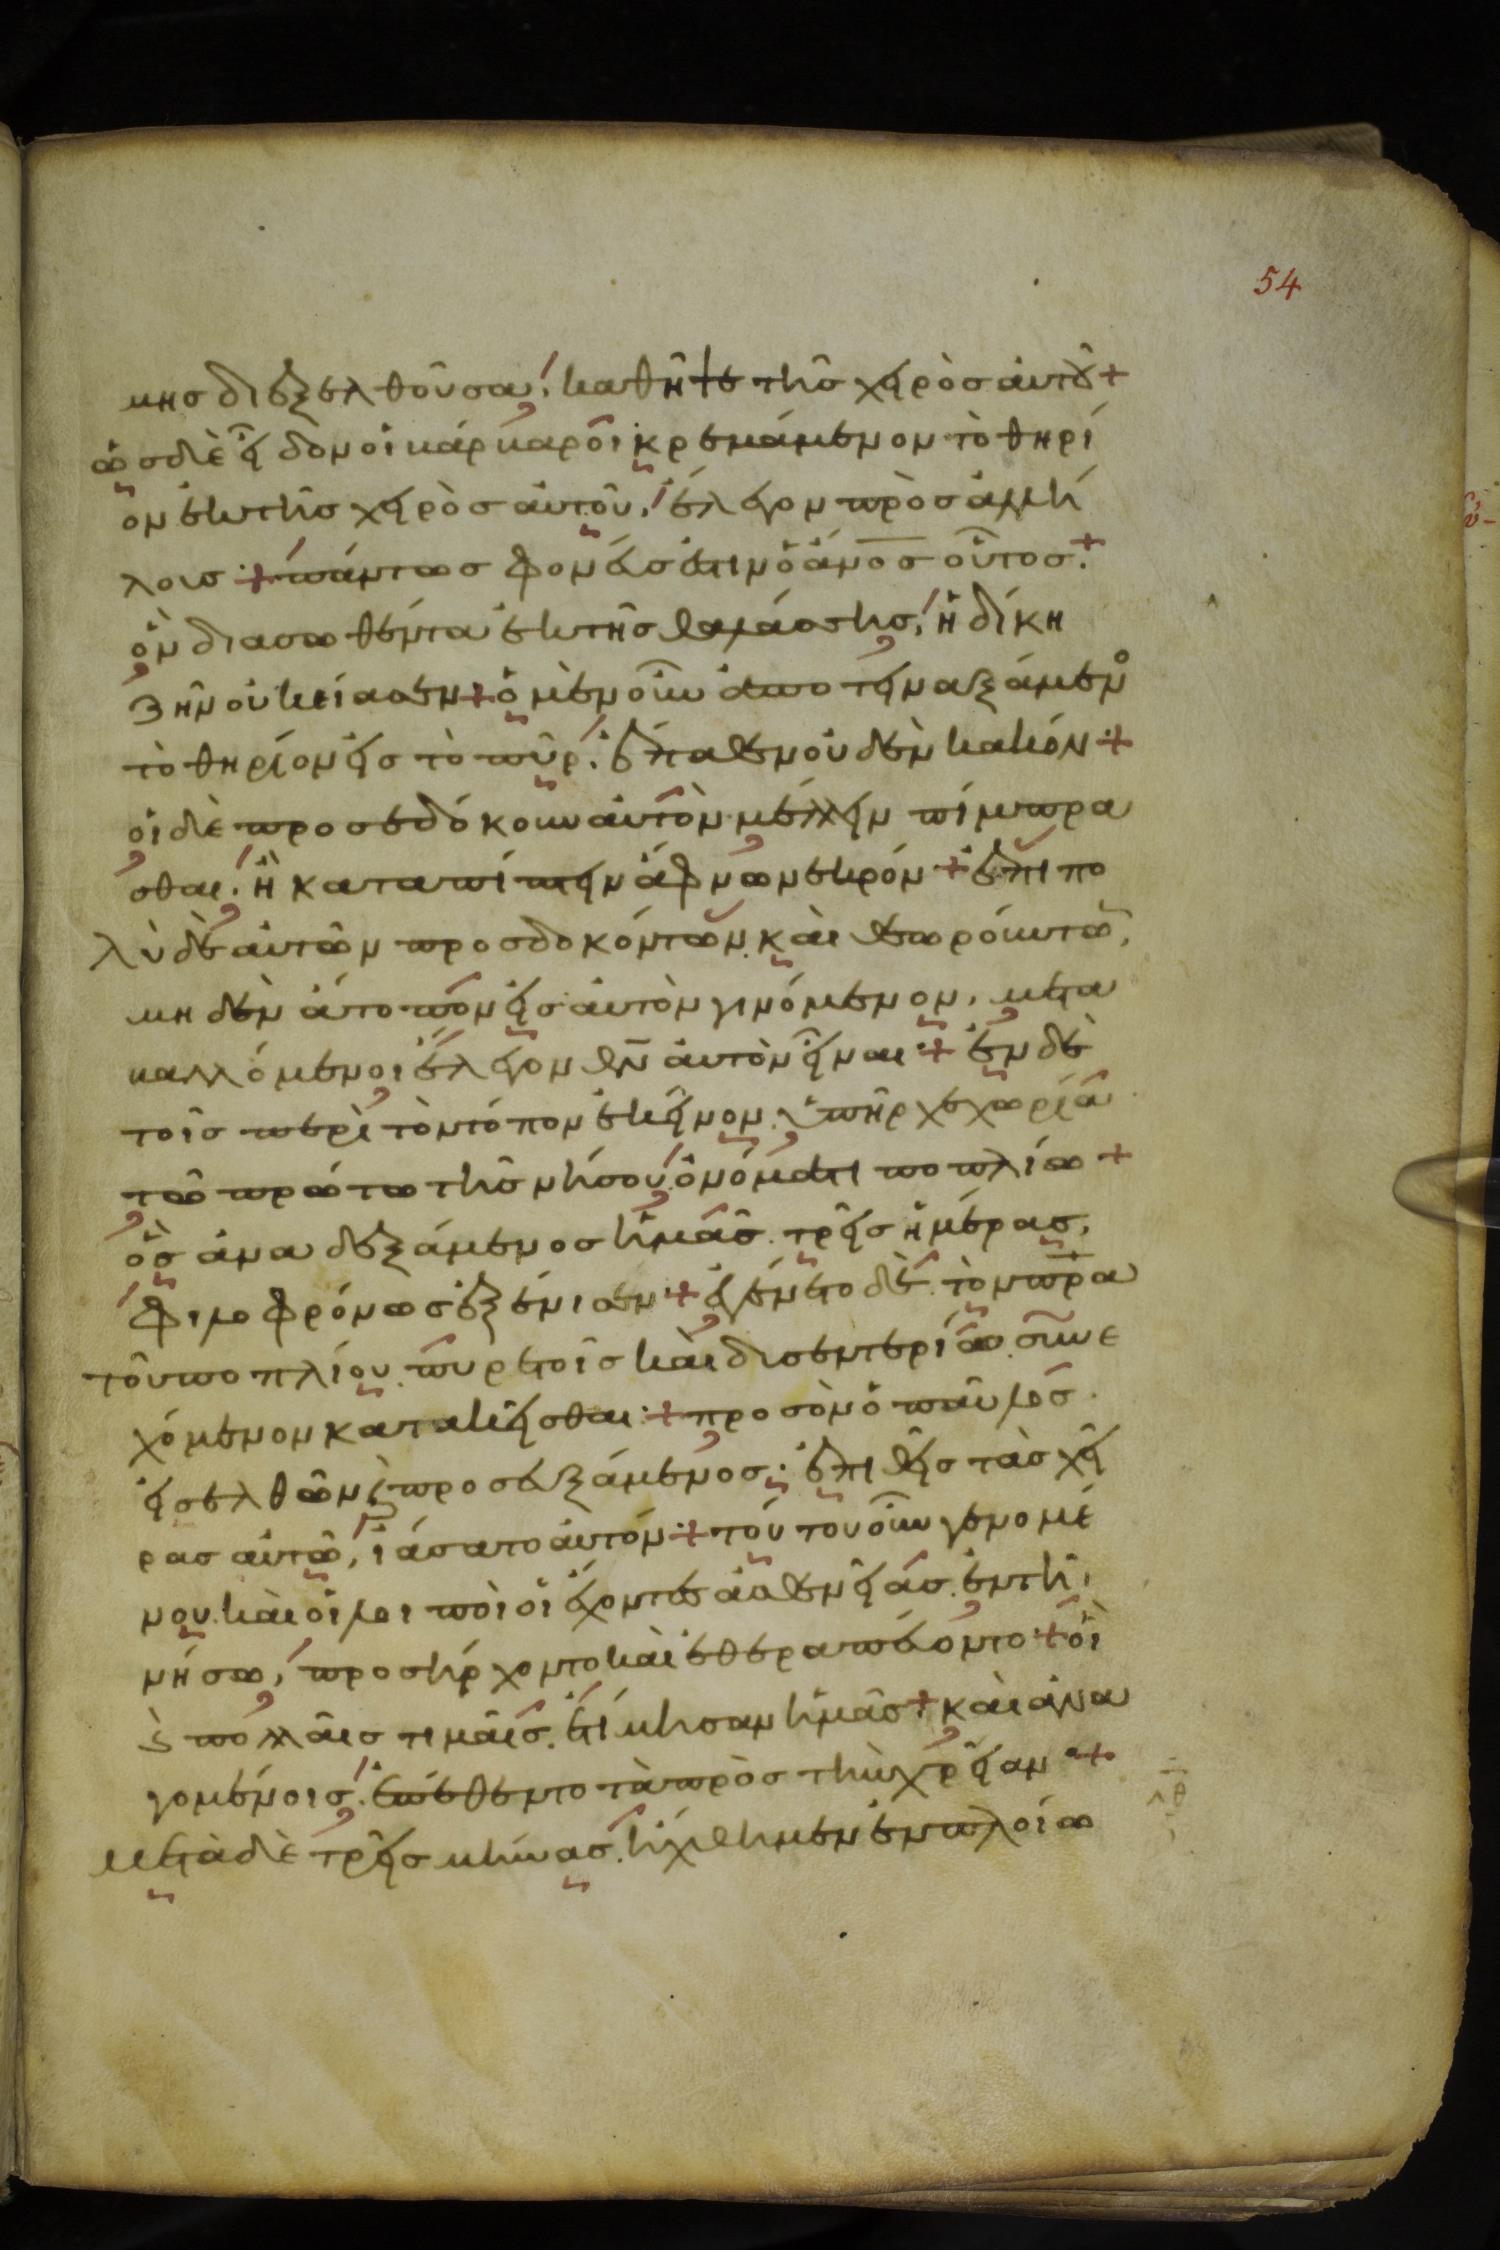 54
μης διεξελθοῦσα, καθῆψε τῆς χειρὸς αὐτοῦ
ὡς δὲ εἶδον οἱ βάρβαροι κρεμάμενον τὸ θηρί
ον ἐκ τῆς χειρὸς αὐτοῦ, ἔλεγον πρὸς ἀλλή
λους πάντως φονεύς ἐστιν ὁ ἄνος οὗτος.
ὃν διασωθέντα ἐκ τῆς θαλάσσης, ἡ δίκη
ζῆν οὐκ εἴασεν ὁ μὲν οὖν ἀποτειναξάμενο
τὸ θηρίον εἰς τὸ πῦρ. ἔπαθεν οὐδὲν κακόν
οἱ δὲ προσεδόκουν αὐτὸν μέλλειν πίμπρα
σθαι. ἢ καταπίπτειν ἄφνω νεκρόν ἐπὶ πο
λὺ δὲ αὐτῶν προσδοκόντων. καὶ θεωρούντω,
μηδὲν ἄτοπον εἰς αὐτὸν γινόμενον. μετα
βαλλόμενοι ἔλεγον θν αὐτὸν εἶναι ἐν δὲ
τοῖς περὶ τὸν τόπον ἐκεῖνον. ὑπῆρχε χωρία
τῶ πρώτω τῆς νήσου ὀνόματι ποπλίω
ὃς ἀναδεξάμενος ἡμᾶς. τρεῖς ἡμέρας.
φιλοφρόνως ἐξένισεν ἐγένετο δὲ τὸν πρα
τοῦ ποπλίου. πυρετοῖς καὶ δισεντερία. συνε
χόμενον κατακεῖσθαι προς ὃν ὁ παῦλος.
εἰσελθὼν ϛ προσευξάμενος. ἐπιθεὶς τὰς χεῖ
ρας αὐτῶ, ἰάσατο αὐτόν τούτου οὖν γενομέ
νου. καὶ οἱ λοιποὶ οἱ ἔχοντες ἀσθενείας. ἐν τῆ
νήσω, προσήρχοντο καὶ ἐθεραπεύοντο οἳ
ϛ πολλαῖς τιμαῖς. ἐτίμησαν ἡμᾶς καὶ ἀνα
γομένοις. ἐπέθεντο τὰ πρὸς τὴν χρείαν
μετὰ δὲ τρεῖς μῆνας. ἤχθημεν ἐν πλοίω